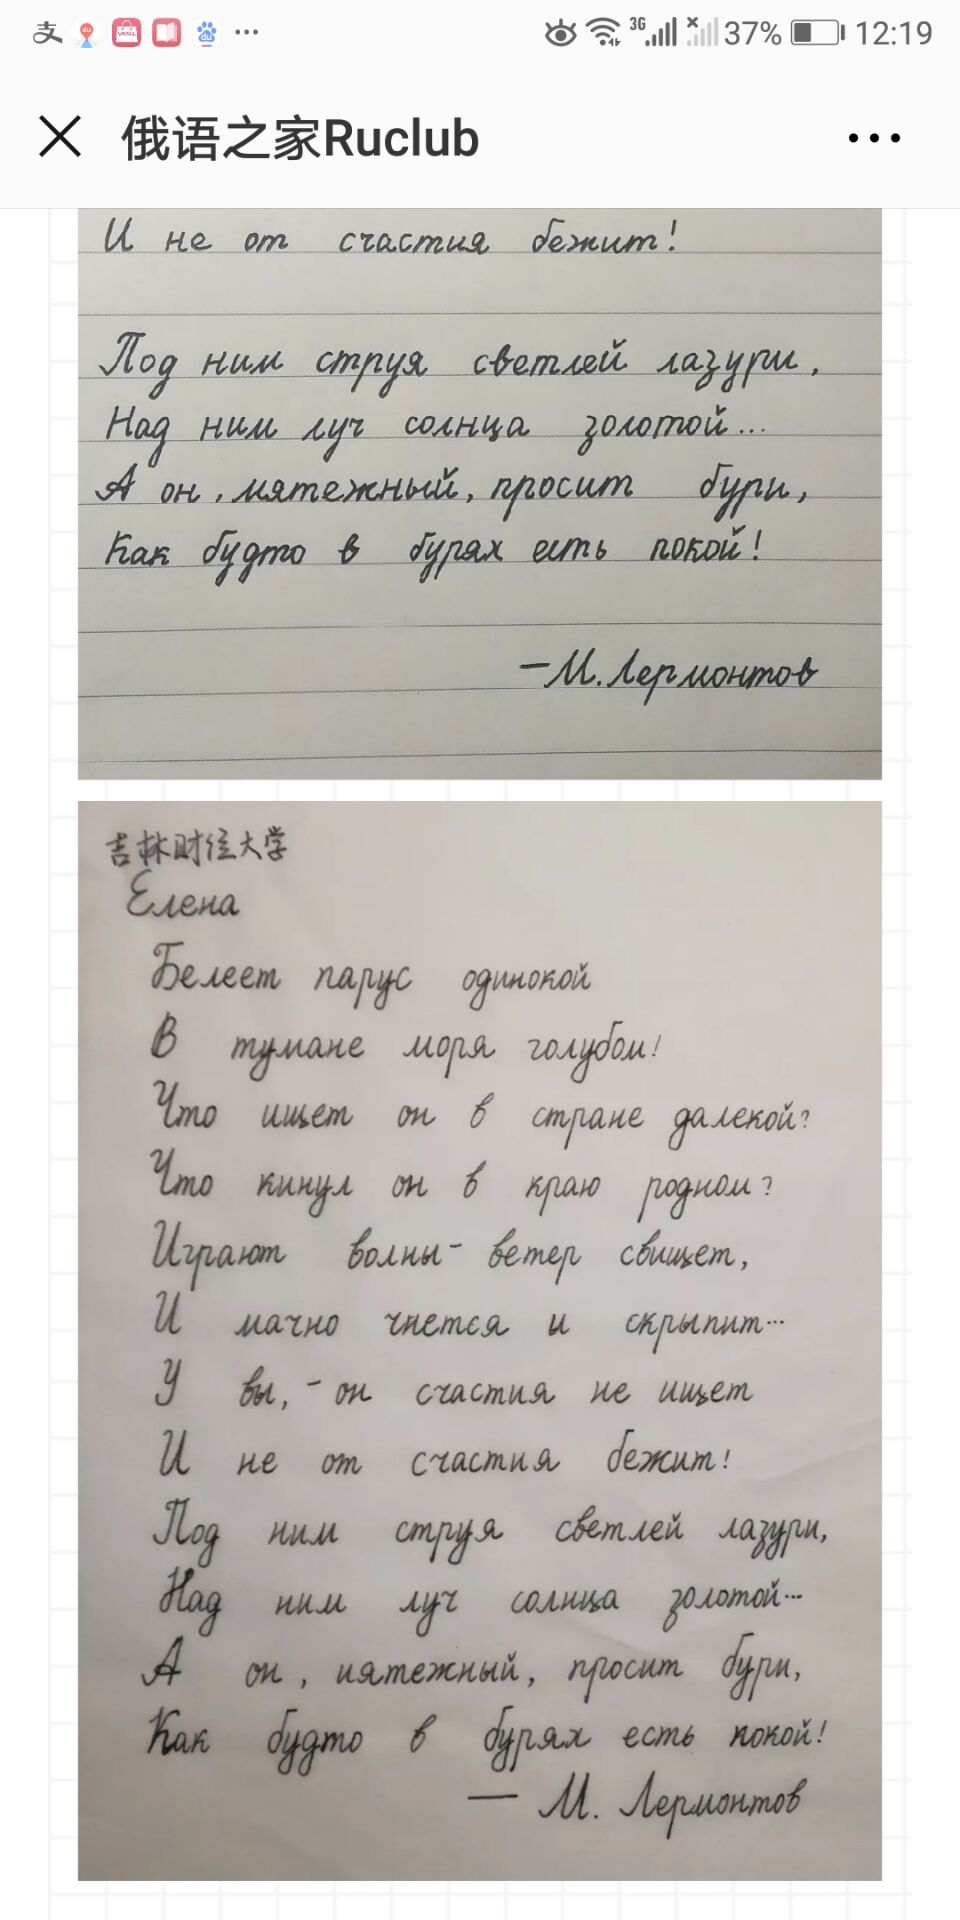 37% 12:19
俄语之家Ruclub
И не от счастия бежит!
Под ним струя светлей лазури,
Над ним луч солнца золотой...
А он, мятежный, просит бури,
Как будто в бурях есть покой!
—М. Лермонтов
吉林财经大学
Елена
Белеет парус одинокой
В тумане моря голубом!
Что ищет он в стране далекой?
Что кинул он в краю родном?
Играют волны- ветер свищет,
И мачно чнется и скрыпит...
У вы, - он счастия не ищет
И не от счастия бежит!
Под ним струя светлей лазури,
Над ним луч солнца золотой...
А он, иятежный, просит бури,
Как будто в бурях есть покой!
— М. Лермонтов